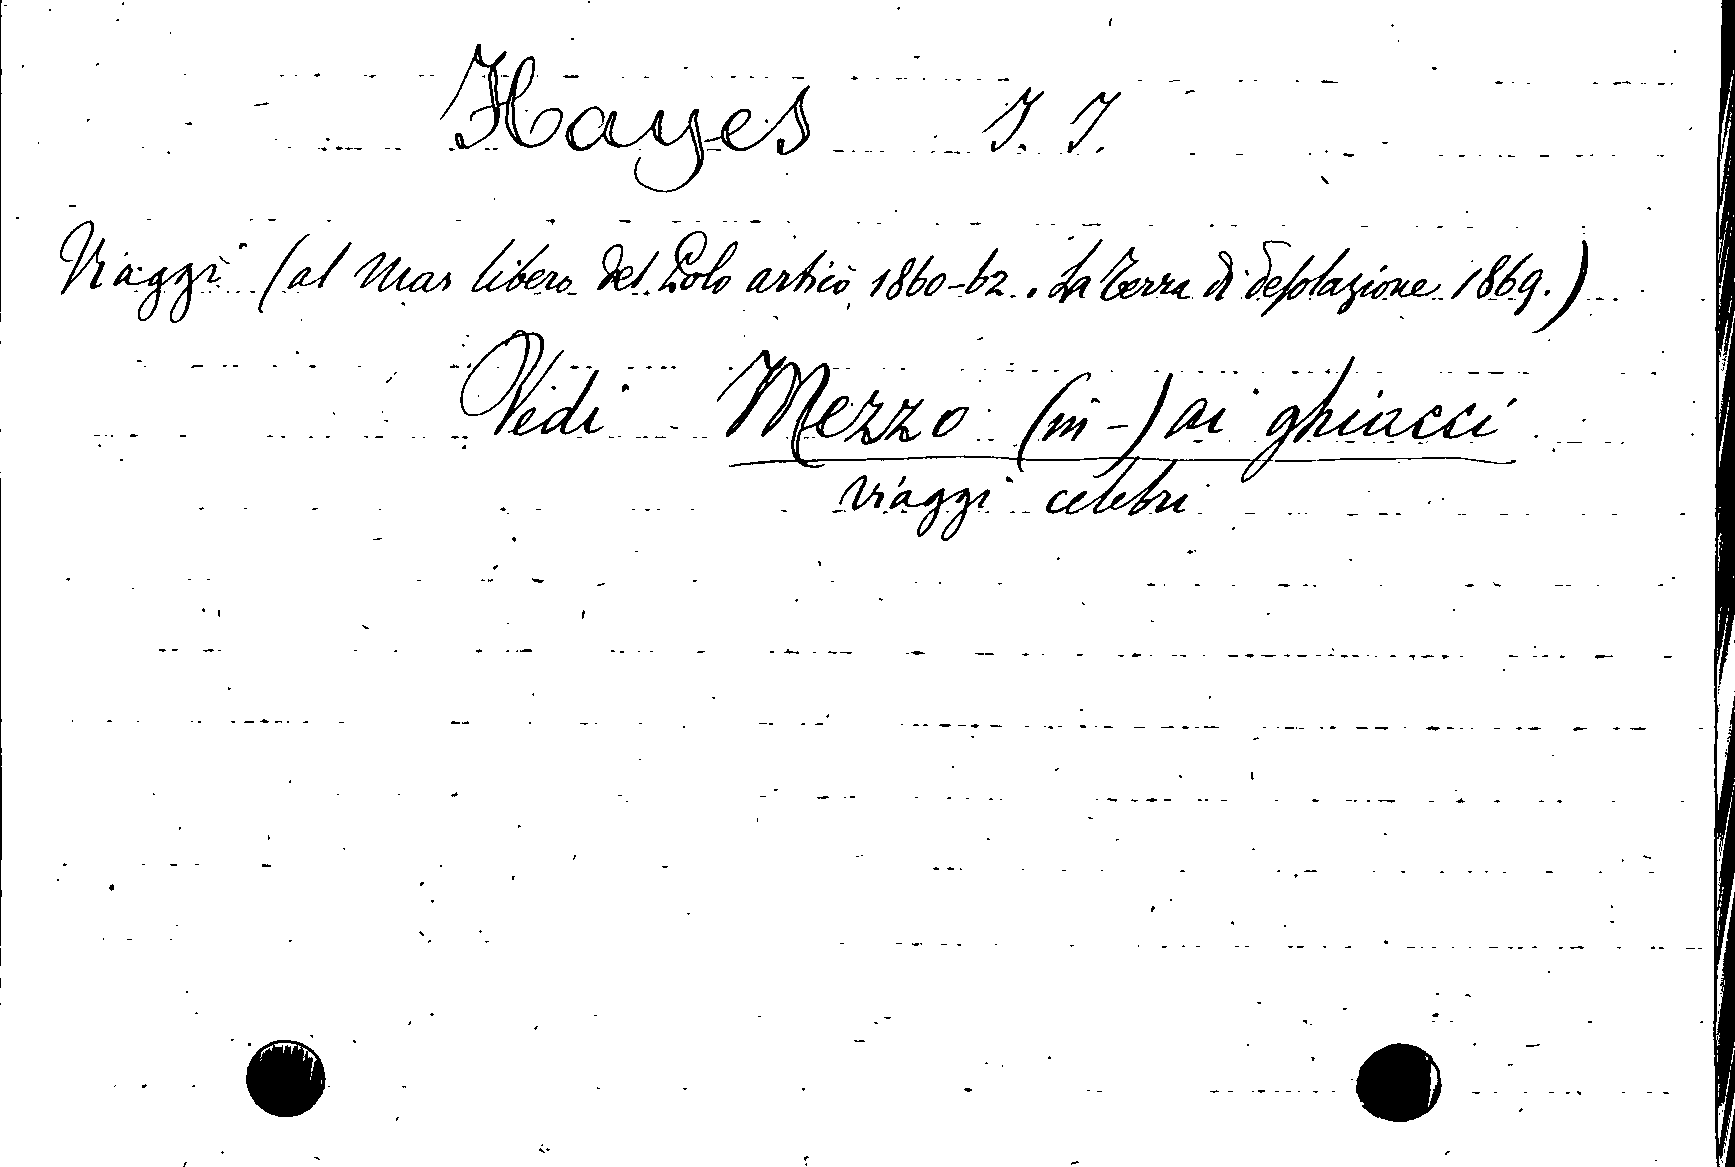 Hayes J. J.
Viaggi (al Mar libero del Polo artico 1860-62. La Terra di desolazione 1869.)
Vedi Mezzo (in-) ai ghiacci
viaggi celebri